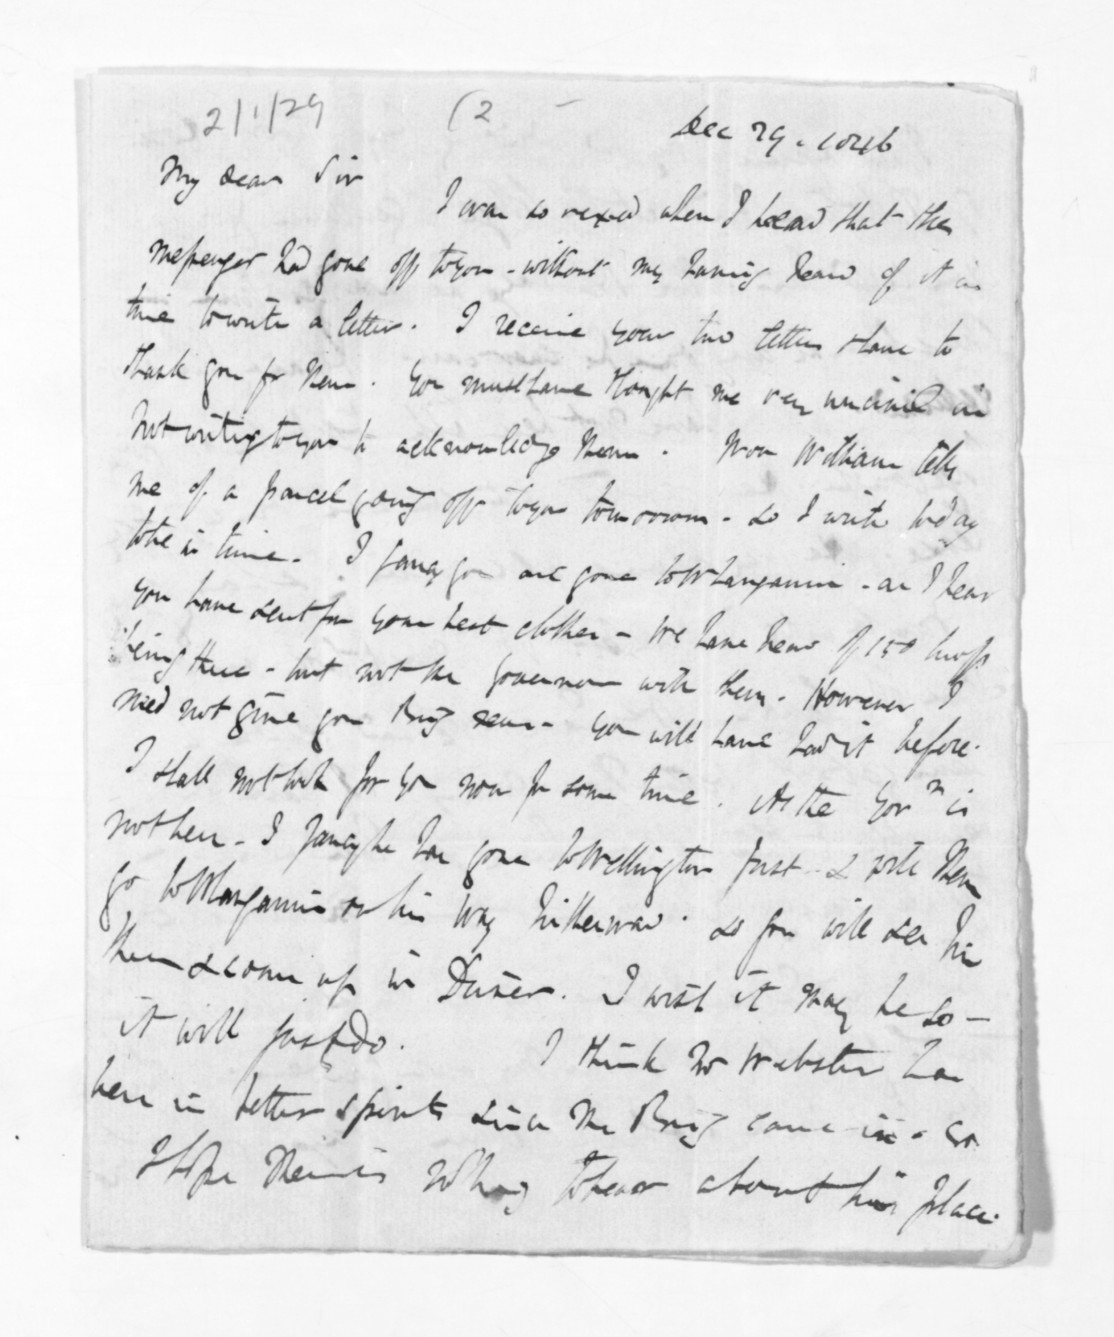 2/1/29 (2
Dec 29. 1846
My dear Sir
I was so vexed when I heard that the
messenger had gone off to you - without my having heard of it in
time to write a letter. I receive your two letters & have to
thank you for them. You must have thought me very uncivil in
not writing to you to acknowledge them. Now William tells
me of a parcel going off to you tomorrow - so I write today
to be in time. I fancy you are gone to Whanganui - as I hear
you have sent for your best clothes - We have heard of 150 troops
being there - but not the Governor with them. However I
need not give you Brig news - you will have had it before.
I shall not look for you now for some time. As the Govn is
not here - I fancy he has gone to Wellington first - & will then
go to Whanganui on his way hitherward. So you will see him
then & come up in Driver. I wish it may be so -
it will just do. I think Mr Webster has
been in better spirits since the Brig came in -
I hope there is nothing to hear about his place.